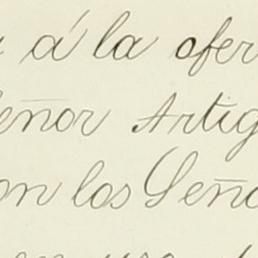 á la ofer
eñor Artig
on los Seño